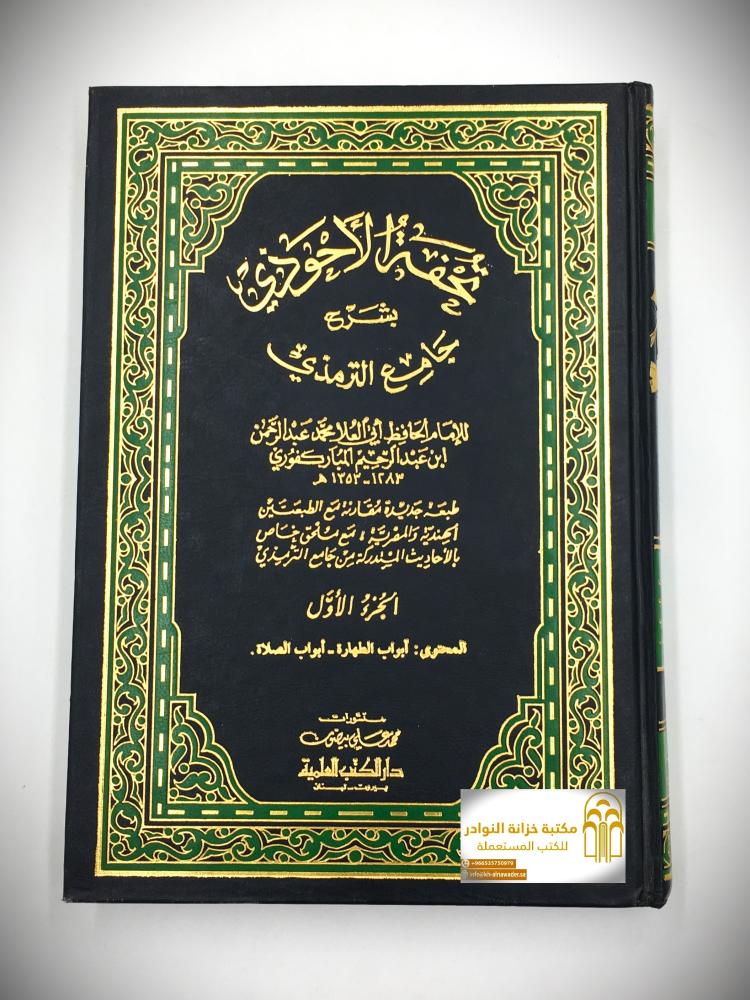 تحفة الأحوذي
بشرح
جامع الترمذي
للإمام الحافظ أبي العلا محمد عبد الرحمن
ابن عبد الرحيم المباركفوري
١٢٨٣ - ١٣٥٣ هـ
طبعة جديدة مقارنة مع الطبعتين
الهندية والمصرية؛ مع ملحق خاص
بالأحاديث المستدركة من جامع الترمذي
الجزء الأول
المحتوى: أبواب الطهارة - أبواب الصلاة.
منشورات
محمد علي بيضون
دار الكتب العلمية
بيروت - لبنان
مكتبة خزانة النوادر
للكتب المستعملة
+966535750979
info@kh-alnawader.sa